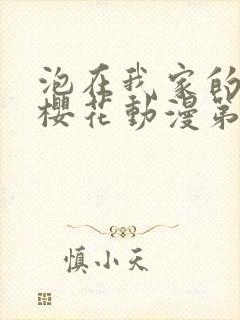 泡在我家的
櫻花動漫第
慎小天